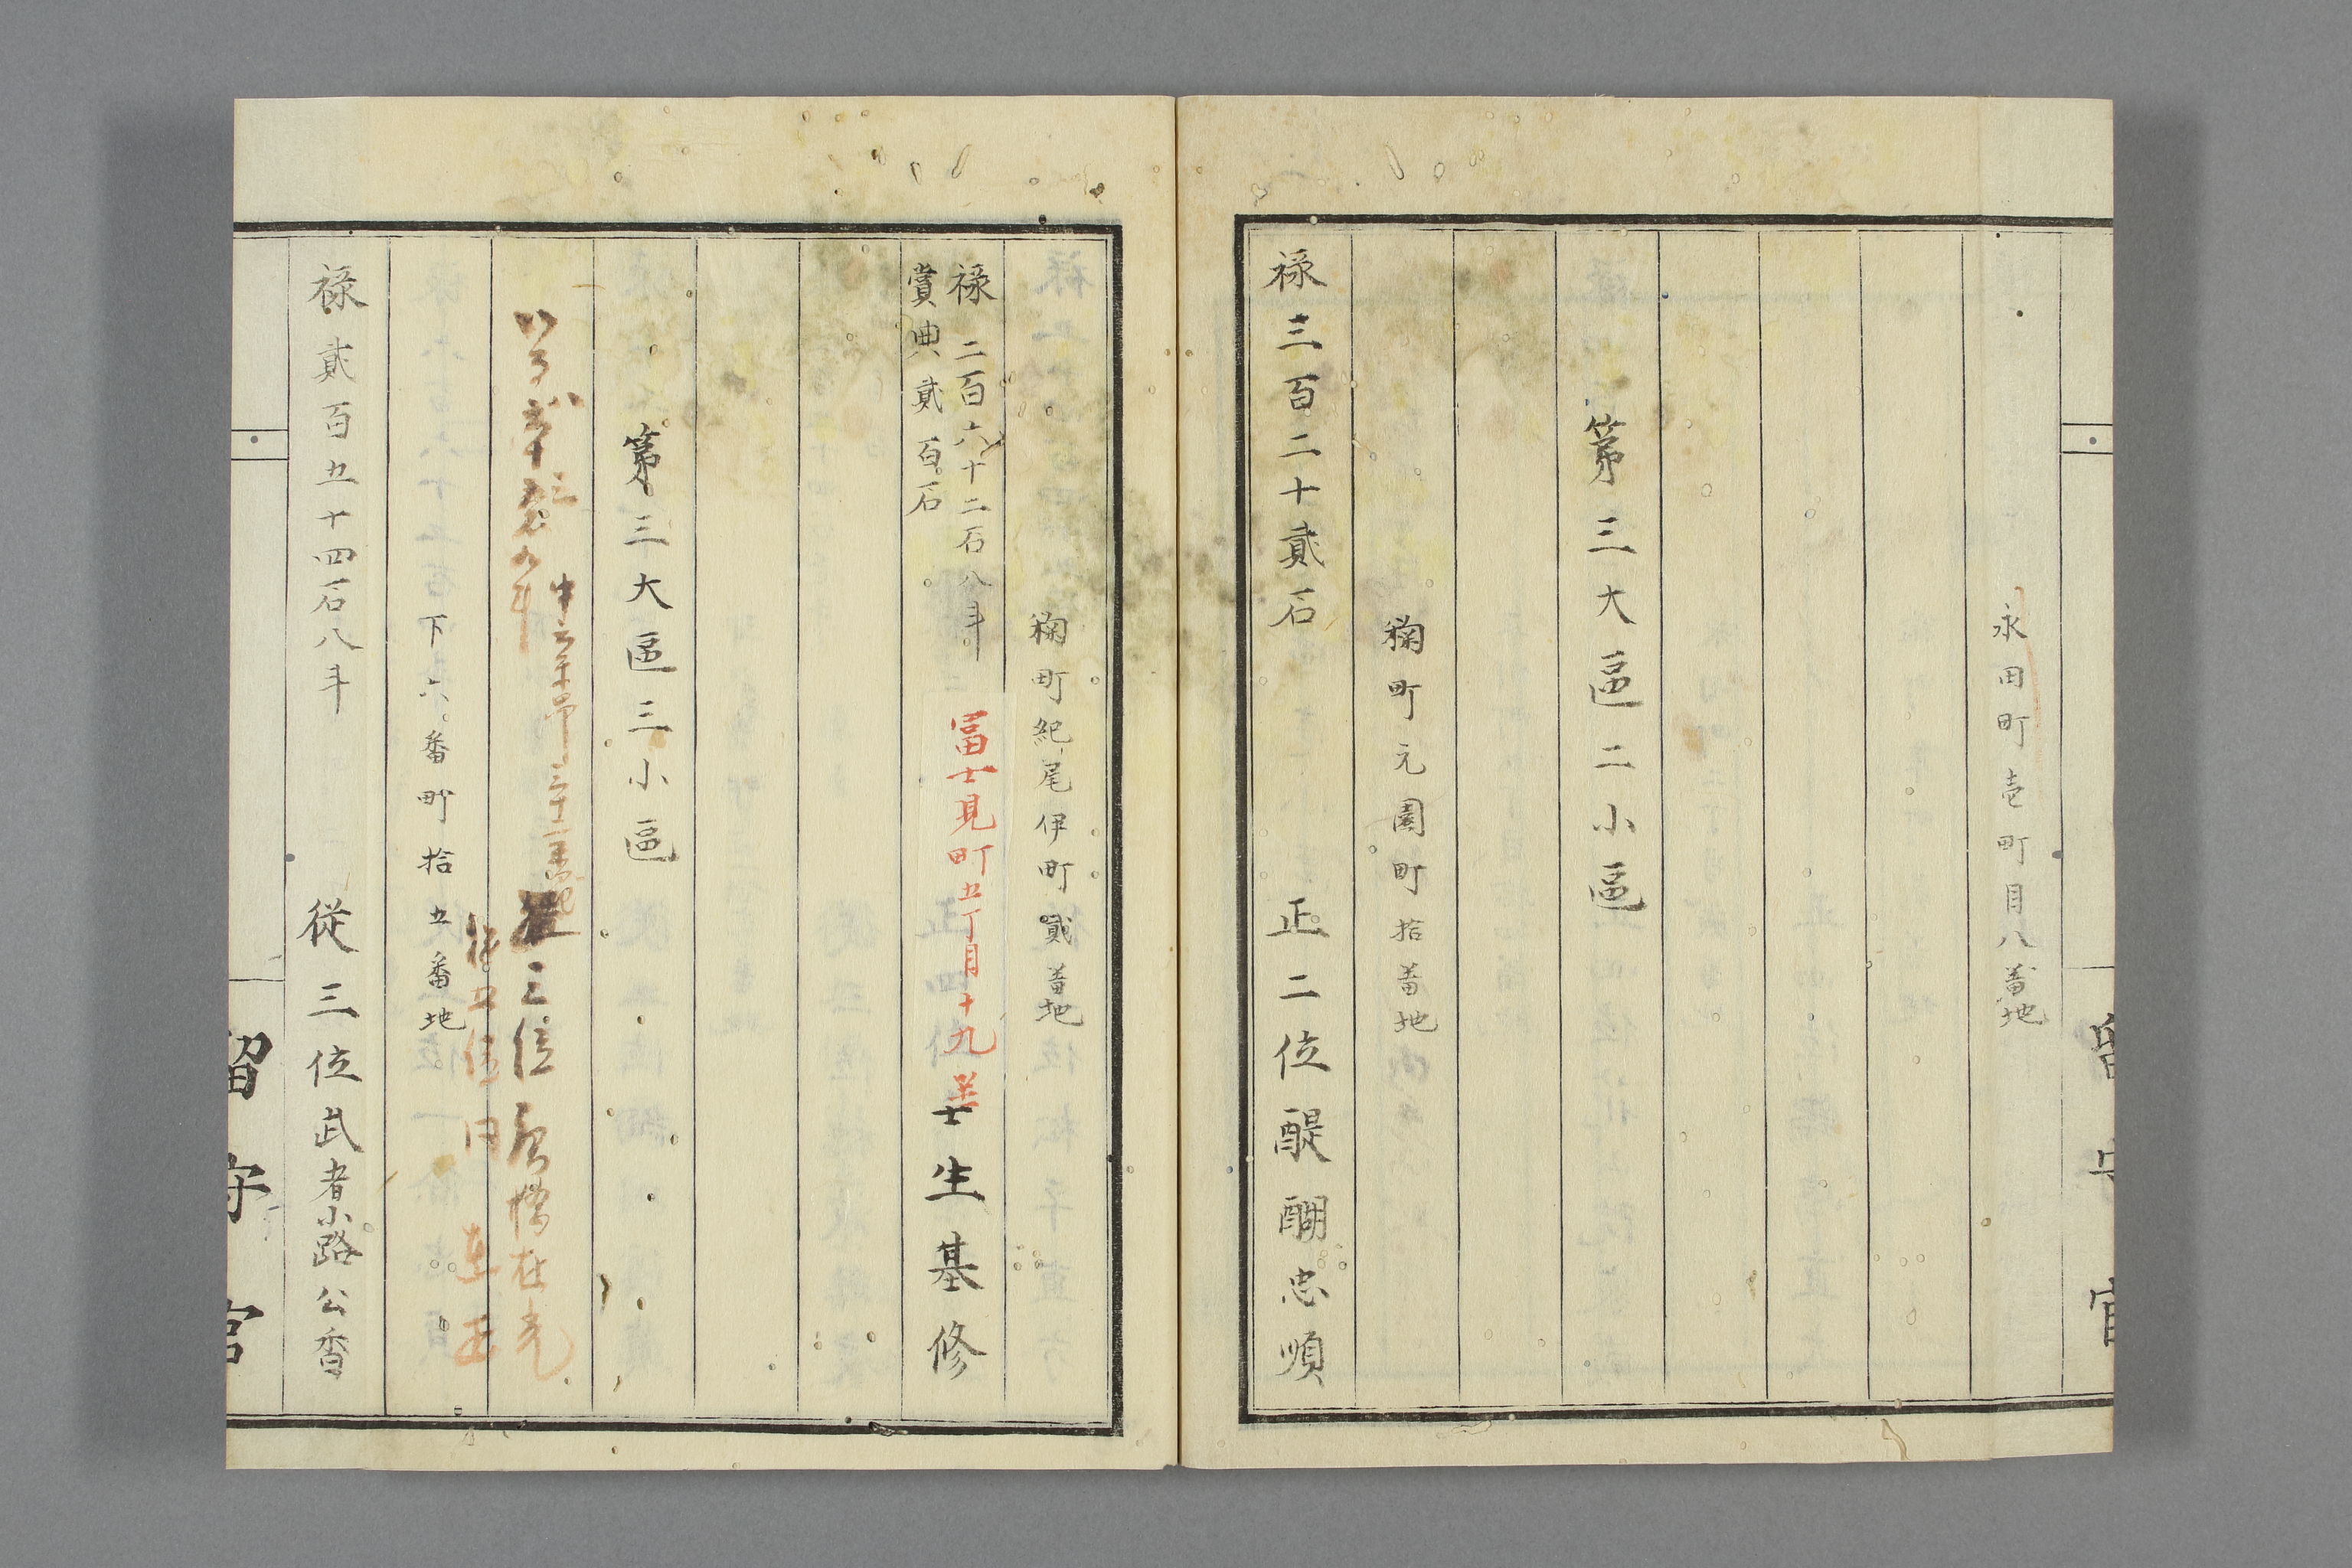 永田町壱町目八番地
第三大區二小區
麹町元園町拾番地
禄三百二十貳石 正二位醍醐忠順
麹町紀尾伊町貳番地
禄二百六十二石八斗
賞典貳百石
冨士見町五丁目十九
壬生基修
第三大區三小區
三位
下六番町拾五番地
禄貳百五十四石八斗 従三位武者小路公香
留守官